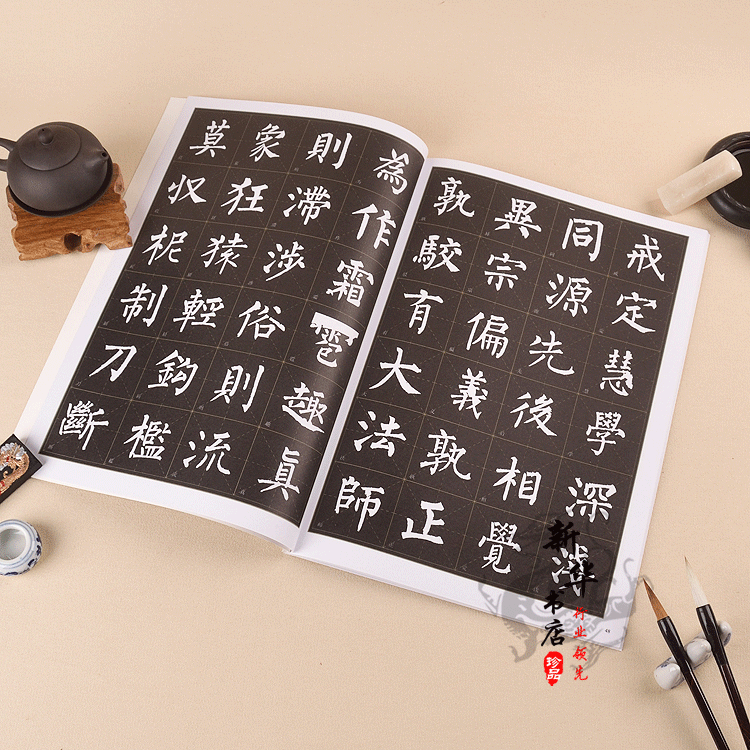 戒定慧學深淺
同源先後相覺
異宗偏義孰正
孰駮有大法師
為作霜雹趣真
則滯涉俗則流
象狂猿輕鉤檻
莫収柅制刀斷
新华书店
行业领先
珍品